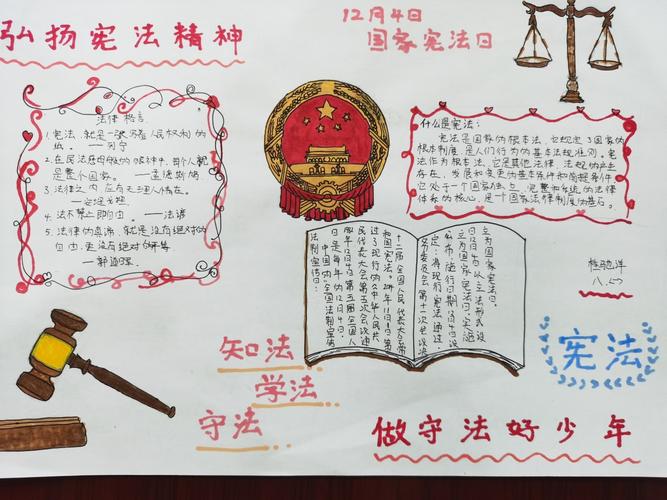 弘扬宪法精神
12月4日
国家宪法日
法律格言
1.宪法,就是一张写着人民权利的
纸。——列宁
2.在民法慈母般的眼神中,每个人就
是整个国家。——孟德斯鸠
3.法律之内,应有天理人情在。
4.法不禁止即自由。——法谚
5.法律的真谛,就是没有绝对的
自由,更没有绝对的平等
——郭道晖
什么是宪法:
宪法是国家的根本法,它规定了国家的
根本制度,是人们行为的基本法规准则。宪
法作为根本法,它是其他法律、法规的产生
存在、发展和变更的基本条件和前提条件
它处于一个国家独立、完整和系统的法律
体系的核心,是一个国家法律制度的基石。
八.
立为国家宪法日。
日12月4日,以立法形式设
定:将现行宪法通过、
务委员会第十一次会议决
十二届全国人民代表大会常
和国宪法。2014年11月1日第
过了现行的《中华人民共
民代表大会第五次会议通
1982年12月4日,第五届全国人
日是每年的12月4日,
中国的全国法制宣传
法制宣传日:
知法
学法
守法
宪法
做守法好少年